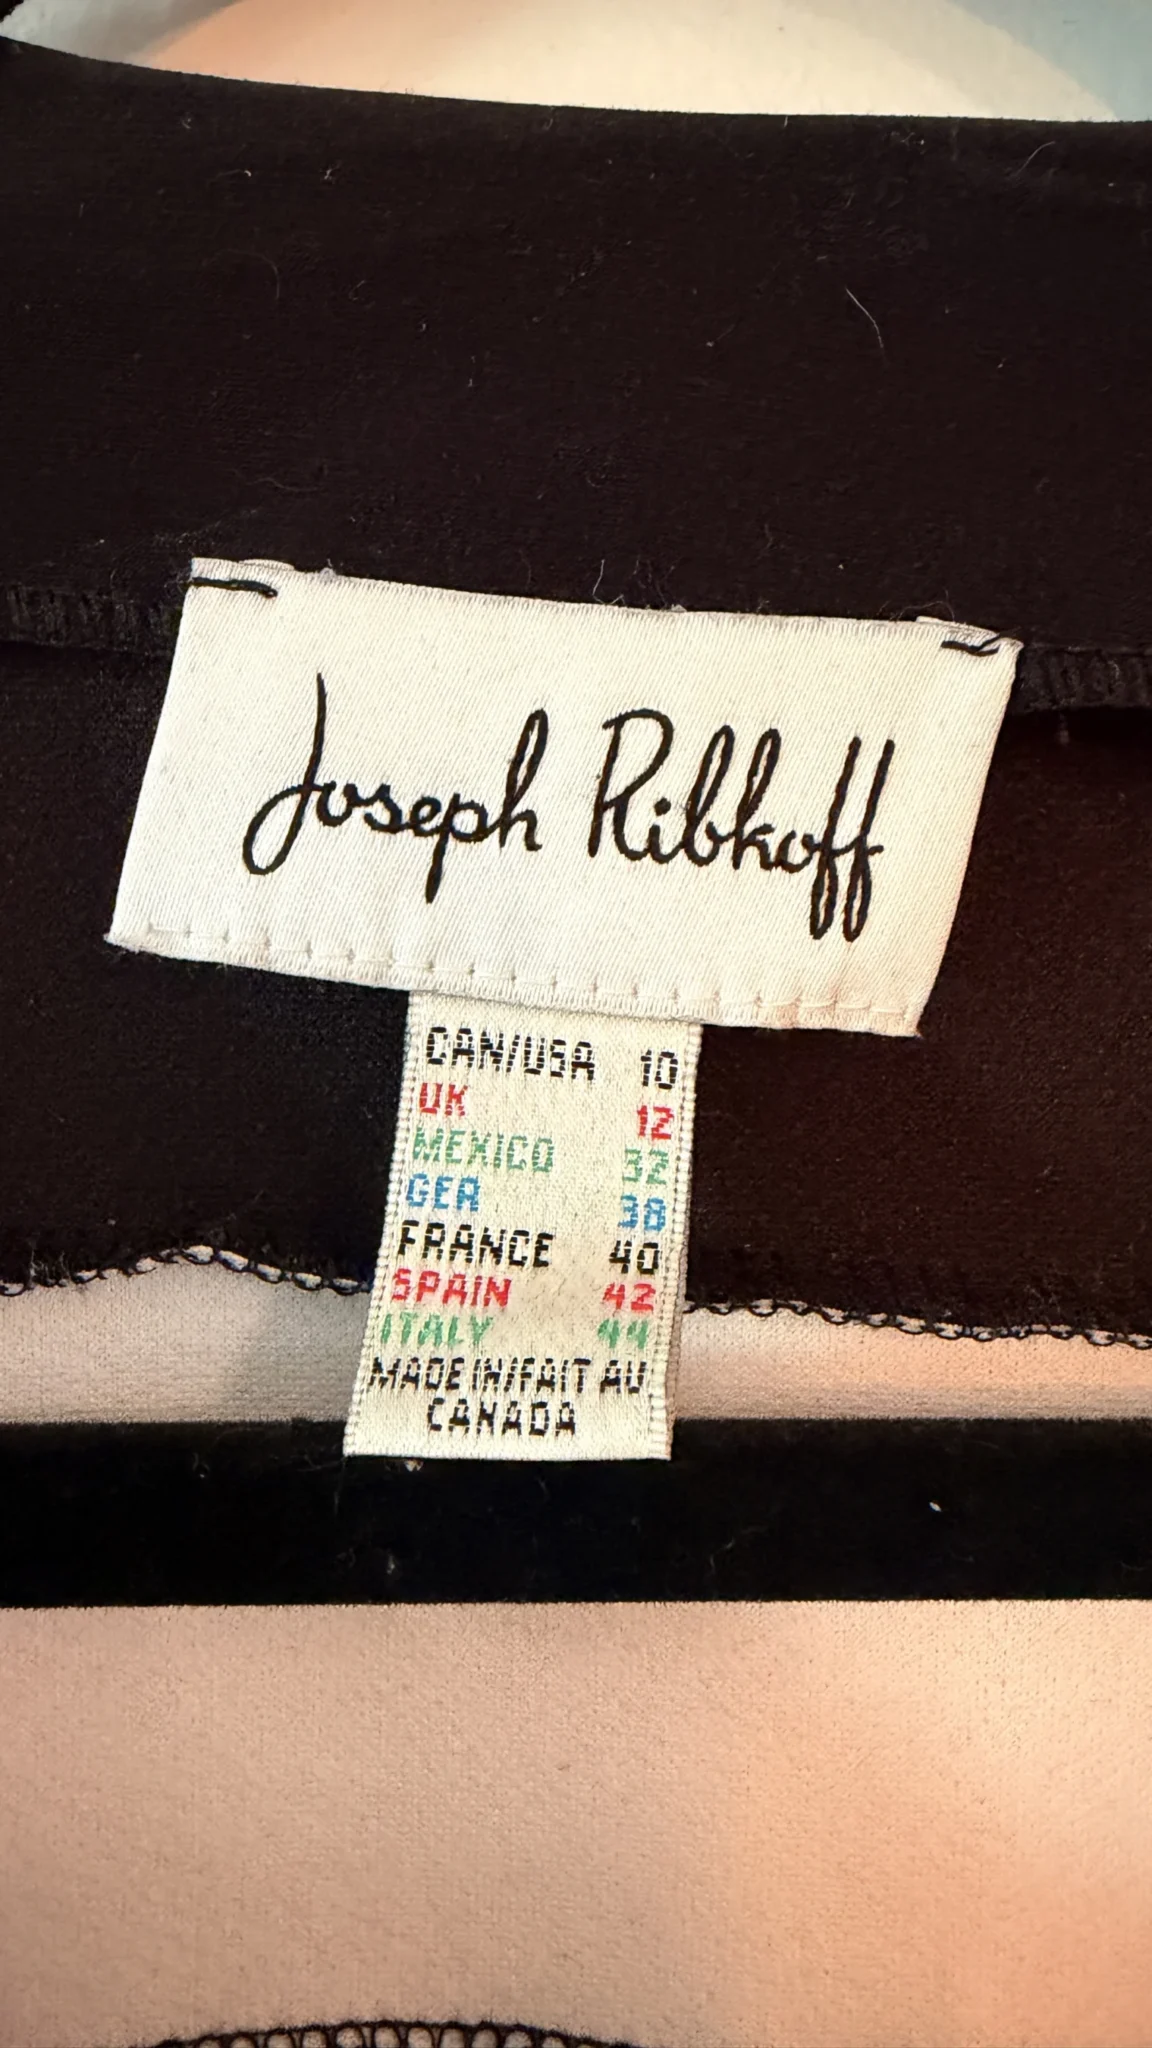 Joseph Ribkoff
CAN/USA 10
UK 12
MEXICO 32
GER 38
FRANCE 40
SPAIN 42
ITALY 44
MADE IN/FAIT AU
CANADA